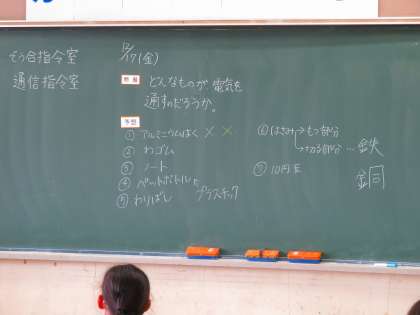 そう合指令室
通信指令室
12/17(金)
問題
どんなものが、電気を
通すのだろうか。
予想
① アルミニウムはく × ×
② わゴム
③ ノート
④ ペットボトル プラスチック
⑤ わりばし
⑥ はさみ→もつ部分
→切る部分…鉄
⑦ 10円玉 銅